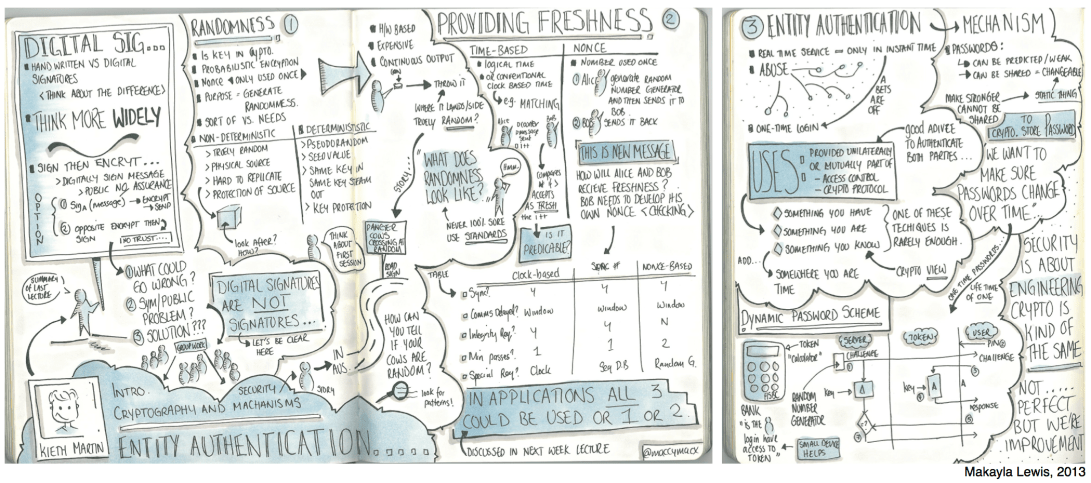 DIGITAL SIG...
HAND WRITTEN VS DIGITAL
SIGNATURES
<THINK ABOUT THE DIFFERENCES>
THINK MORE WIDELY
SIGN THEN ENCRYT...
> DIGITALLY SIGN MESSAGE
> PUBLIC NO. ASSURANCE
OPTION
① SIGN (MESSAGE) → ENCRYPT
→ SEND
② OPPOSITE ENCRYPT THEN
SIGN
NO TRUST....
SUMMARY
OF LAST
LECTURE
① WHAT COULD
GO WRONG?
② SYM/PUBLIC
PROBLEM?
③ SOLUTION???
GROUPWORK
DIGITAL SIGNATURES
ARE NOT
SIGNATURES...
LET'S BE CLEAR
HERE
KIETH MARTIN
INTRO:
CRYPTOGRAPHY AND MACHANISMS
SECURITY/
STORY
ENTITY AUTHENTICATION....
RANDOMNESS ①
IS KEY IN CYPTO.
PROBABILISTIC ENCRYPTION
NONCE <ONLY USED ONCE>
PURPOSE = GENERATE
RANDOMNESS.
SORT OF VS. NEEDS
NON-DETERMINISTIC
> TRUELY RANDOM
> PHYSICAL SOURCE
> HARD TO REPLICATE
> PROTECTION OF SOURCE
look after?
How?
DETERMINISTISTIC
> PSEUDORANDOM
> SEED VALUE
> SAME KEY IN
SAME KEY STREAM
OUT
> KEY PROTECTION
THINK
ABOUT
FIRST
SESSION
H/W BASED
EXPENSIVE
CONTINUOUS OUTPUT
COIN
THROW IT
WHERE IT LANDS/SIDE
TRUELY RANDOM?
STORY...
WHAT DOES
RANDOMNESS
LOOK LIKE?
Hmm..
NEVER 100% SURE
USE STANDARDS
DANGER
COWS
CROSSING AT
RANDOM
ROAD
SIGN
IN
AUS.
HOW CAN
YOU TELL
IF YOUR
COWS ARE
RANDOM?
look for
patterns!
PROVIDING FRESHNESS ②
TIME-BASED
LOGICAL TIME
OR CONVENTIONAL
CLOCK BASED TIME
e.g. MATCHING
Alice
Bob
COMPARES
ACCEPTS
AS FRESH
the i++
IS IT
PREDICABLE?
NONCE
NUMBER USED ONCE
① Alice GENERATE RANDOM
NUMBER GENERATOR
AND THEN SENDS IT TO
BOB
② BOB SENDS IT BACK
THIS IS NEW MESSAGE
HOW WILL ALICE AND BOB
RECIEVE FRESHNESS?
BOB NEEDS TO DEVELOP HIS
OWN NONCE <CHECKING>
TABLE
Clock-based
NONCE-BASED
Sync? Y Y Y
Comms Delayd? Window Window Window
Integrity Req? Y Y N
Min passes? 1 1 2
Special Req? Clock Seq D.B Random G.
IN APPLICATIONS ALL 3
COULD BE USED OR 1 OR 2.
DISCUSSED IN NEXT WEEK LECTURE
@maccymacx
③ ENTITY AUTHENTICATION → MECHANISM
REAL TIME SERVICE — ONLY IN INSTANT TIME
ABUSE
A
BETS
ARE
OFF
ONE-TIME LOGIN
PASSWORDS:
CAN BE PREDICTED/WEAK
CAN BE SHARED = CHANGEABLE
MAKE STRONGER
CANNOT BE
SHARED
STATIC THING
TO
CRYPTO. STORE PASSWORD
good ADIVEE
TO
AUTHENTICATE
BOTH PARTIES...
USES
PROVIDED UNILATERALLY
OR MUTUALLY PART OF
- ACCESS CONTROL
- CRYPTO PROTOCOL
SOMETHING YOU HAVE
SOMETHING YOU ARE
SOMETHING YOU KNOW
ADD...
SOMEWHERE YOU ARE
TIME
ONE OF THESE
TECHIQUES IS
RARELY ENOUGH...
CRYPTO VIEW
WE WANT TO
MAKE SURE
PASSWORDS CHANGE
OVER TIME"
ONE TIME PASSWORDS...
LIFE TIME
OF ONE
SECURITY
IS ABOUT
ENGINEERING
CRYPTO IS
KIND OF
THE SAME
NOT.....
PERFECT
BUT WE'RE
IMPROVEMENT
DYNAMIC PASSWORD SCHEME
TOKEN
"Calculator"
HSBC
RANDOM
NUMBER
GENERATOR
BANK
"IS THE
login have
access to
TOKEN"
SMALL DEVICE
HELPS
SERVER
TOKEN
USER
PING
CHALLENGE
CHALLENGE
Key
A
Key
A
RESPONSE
=?
Makayla Lewis, 2013